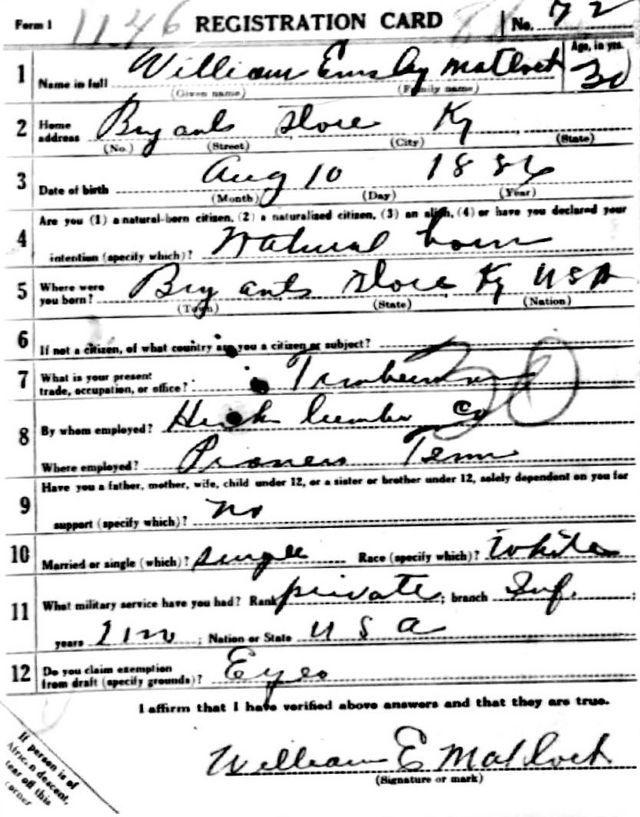 Form 1 1146 REGISTRATION CARD No. 72
1 Name in full William Emsley Matlock Age, in yrs. 30
(Given name) (Family name)
2 Home address Bryants Store Ky
(No.) (Street) (City) (State)
3 Date of birth Aug 10 1886
(Month) (Day) (Year)
Are you (1) a natural-born citizen, (2) a naturalized citizen, (3) an alien, (4) or have you declared your
4 intention (specify which)? Natural born
5 Where were you born? Bryants Store Ky USA
(Town) (State) (Nation)
6 If not a citizen, of what country are you a citizen or subject?
7 What is your present trade, occupation, or office? Timberman
8 By whom employed? Lumber Co
Where employed? Pioneer Tenn
9 Have you a father, mother, wife, child under 12, or a sister or brother under 12, solely dependent on you for
support (specify which)? No
10 Married or single (which)? Single Race (specify which)? White
11 What military service have you had? Rank private; branch Inf.;
years ; Nation or State U S A
12 Do you claim exemption from draft (specify grounds)? Eyes
I affirm that I have verified above answers and that they are true.
William E Matlock
(Signature or mark)
If person is of
African descent,
tear off this
corner